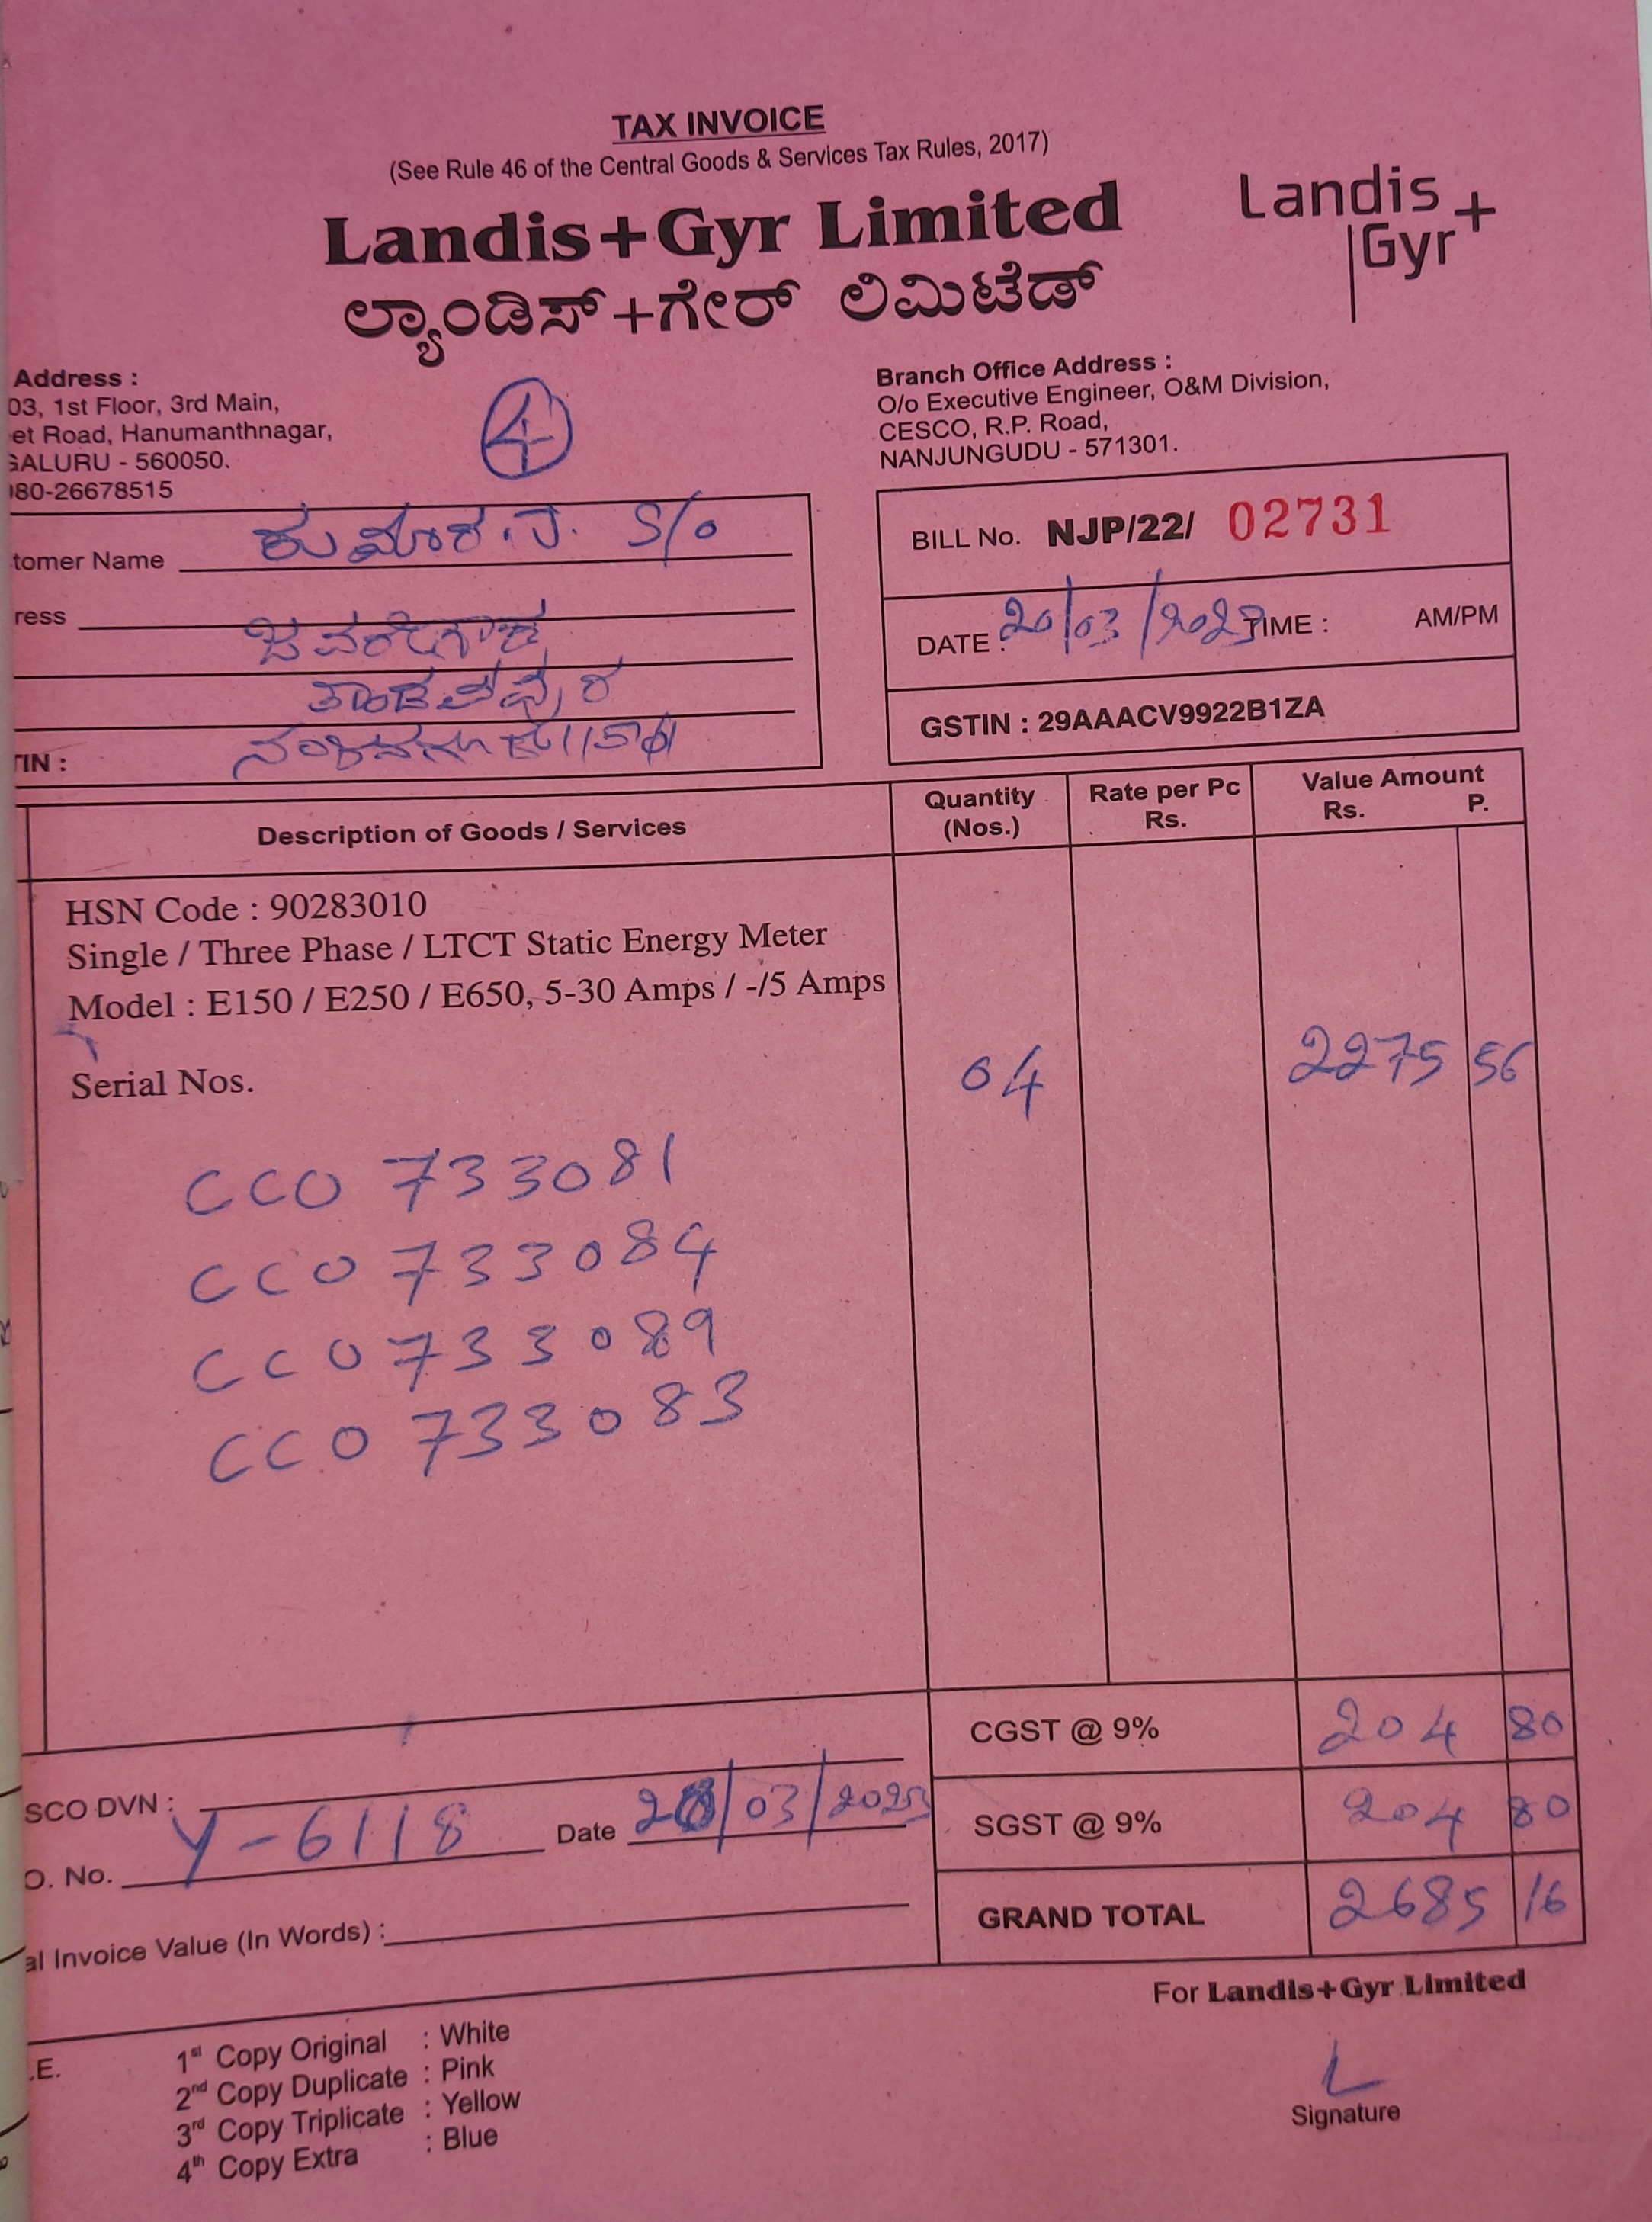 TAX INVOICE
(See Rule 46 of the Central Goods & Services Tax Rules, 2017)
Landis+Gyr Limited
ಲ್ಯಾಂಡಿಸ್+ಗೇರ್ ಲಿಮಿಟೆಡ್
Landis
Gyr+
Address :
03, 1st Floor, 3rd Main,
et Road, Hanumanthnagar,
GALURU - 560050.
080-26678515
4
Branch Office Address :
O/o Executive Engineer, O&M Division,
CESCO, R.P. Road,
NANJUNGUDU - 571301.
tomer Name ಕುಮಾರ.J. S/o
ress
ಜವರೇಗೌಡ
ತಾಂಡವಪುರ
TIN :
BILL No. NJP/22/ 02731
DATE : 20/03/2023 TIME : AM/PM
GSTIN : 29AAACV9922B1ZA
Description of Goods / Services Quantity (Nos.) Rate per Pc Rs. Value Amount Rs. P.
HSN Code : 90283010
Single / Three Phase / LTCT Static Energy Meter
Model : E150 / E250 / E650, 5-30 Amps / -/5 Amps
Serial Nos. 04 2275 56
CCO 733081
CCO 733084
CCO 733089
CCO 733083
CGST @ 9% 204 80
SCO DVN :
SGST @ 9% 204 80
O. No. Y-6118 Date 20/03/2023
GRAND TOTAL 2685 16
al Invoice Value (In Words) :
For Landis+Gyr Limited
.E.
1st Copy Original : White
2nd Copy Duplicate : Pink
3rd Copy Triplicate : Yellow
4th Copy Extra : Blue
Signature